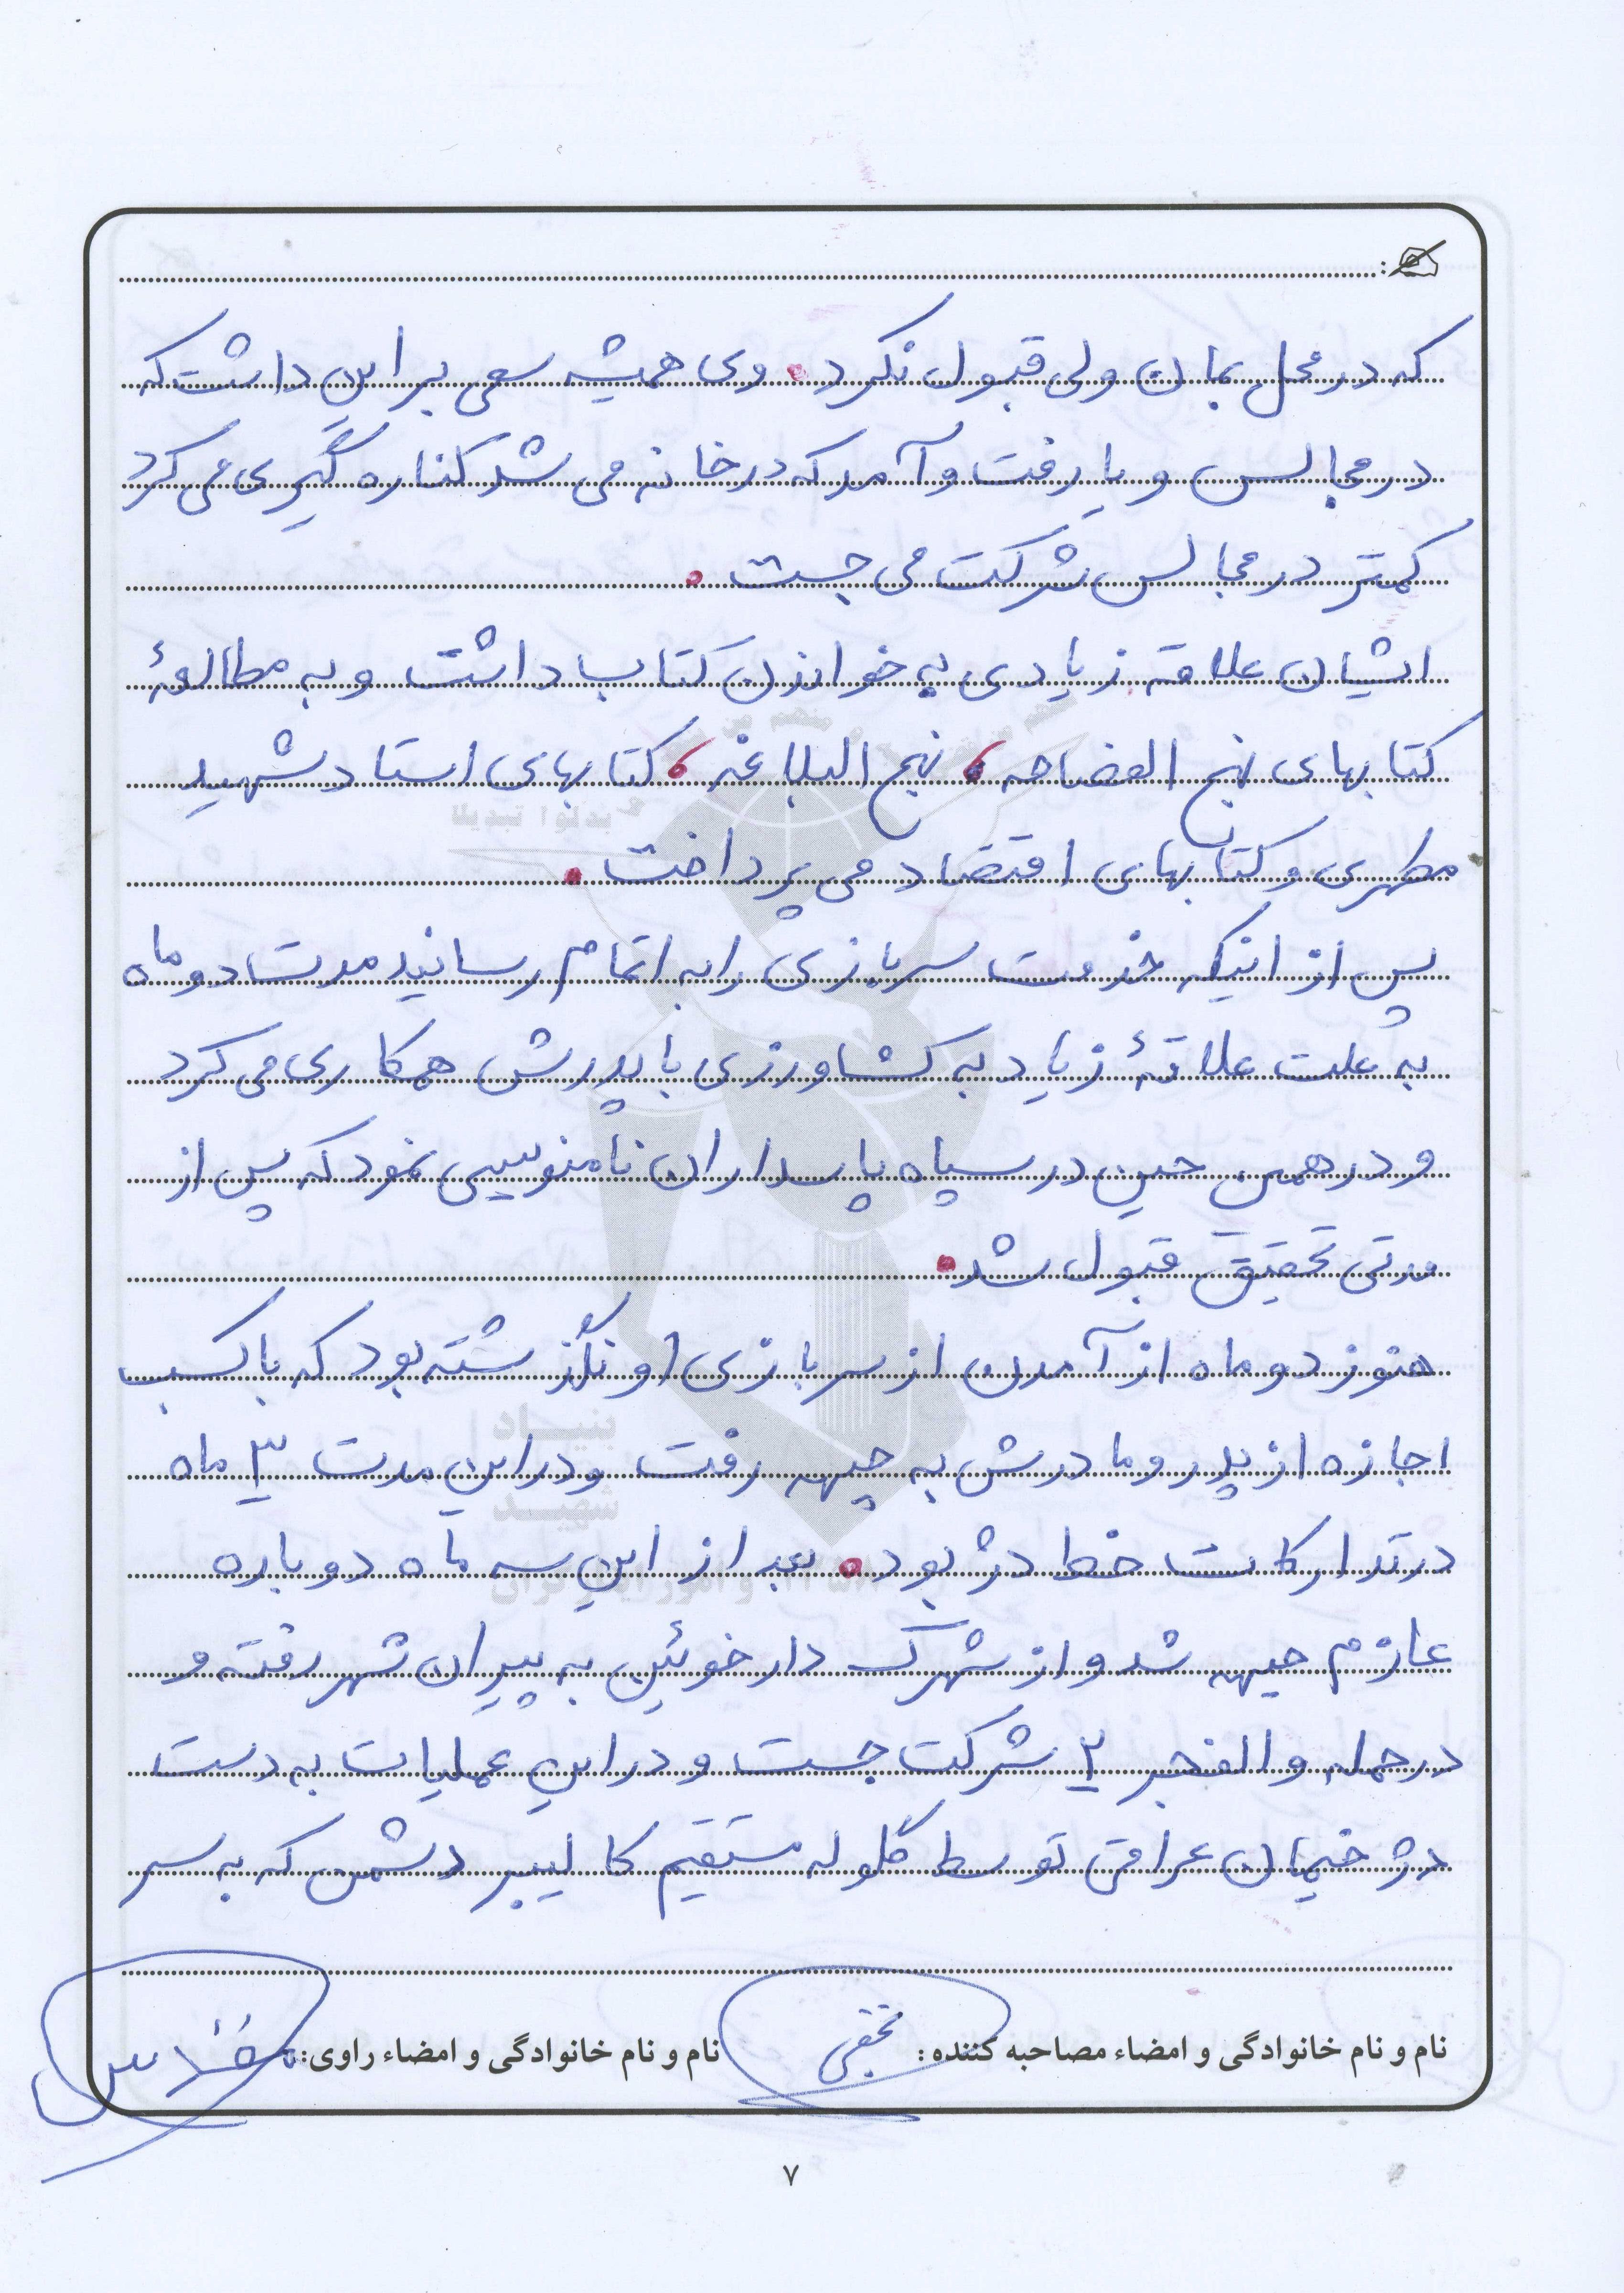 که در محل بمان ولی قبول نکرد. وی همیشه سعی بر این داشت که
در مجالس و یا رفت و آمد که در خانه می شد کناره گیری می کرد
کمتر در مجالس شرکت می جست.
ایشان علاقه زیادی به خواندن کتاب داشت و به مطالعهٔ
کتابهای نهج الفصاحه، نهج البلاغه، کتابهای استاد شهید
مطهری و کتابهای اقتصاد می پرداخت.
پس از اینکه خدمت سربازی را به اتمام رسانید مدت دو ماه
به علت علاقهٔ زیاد به کشاورزی با پدرش همکاری می کرد
و در همین حین در سپاه پاسداران نامنویسی نمود که پس از
مدتی تحقیق قبول شد.
هنوز دو ماه از آمدن از سربازی او نگذشته بود که با کسب
اجازه از پدر و مادرش به جبهه رفت و در این مدت ۳ ماه
در تدارکات خط دژ بود. بعد از این سه ماه دوباره
عازم جبهه شد و از شهرک دارخوئین به پیران شهر رفته و
در حمله والفجر ۲ شرکت جست و در این عملیات به دست
دژخیمان عراقی توسط گلوله مستقیم کالیبر دشمن که به سر
نام و نام خانوادگی و امضاء مصاحبه کننده: نام و نام خانوادگی و امضاء راوی:
۷